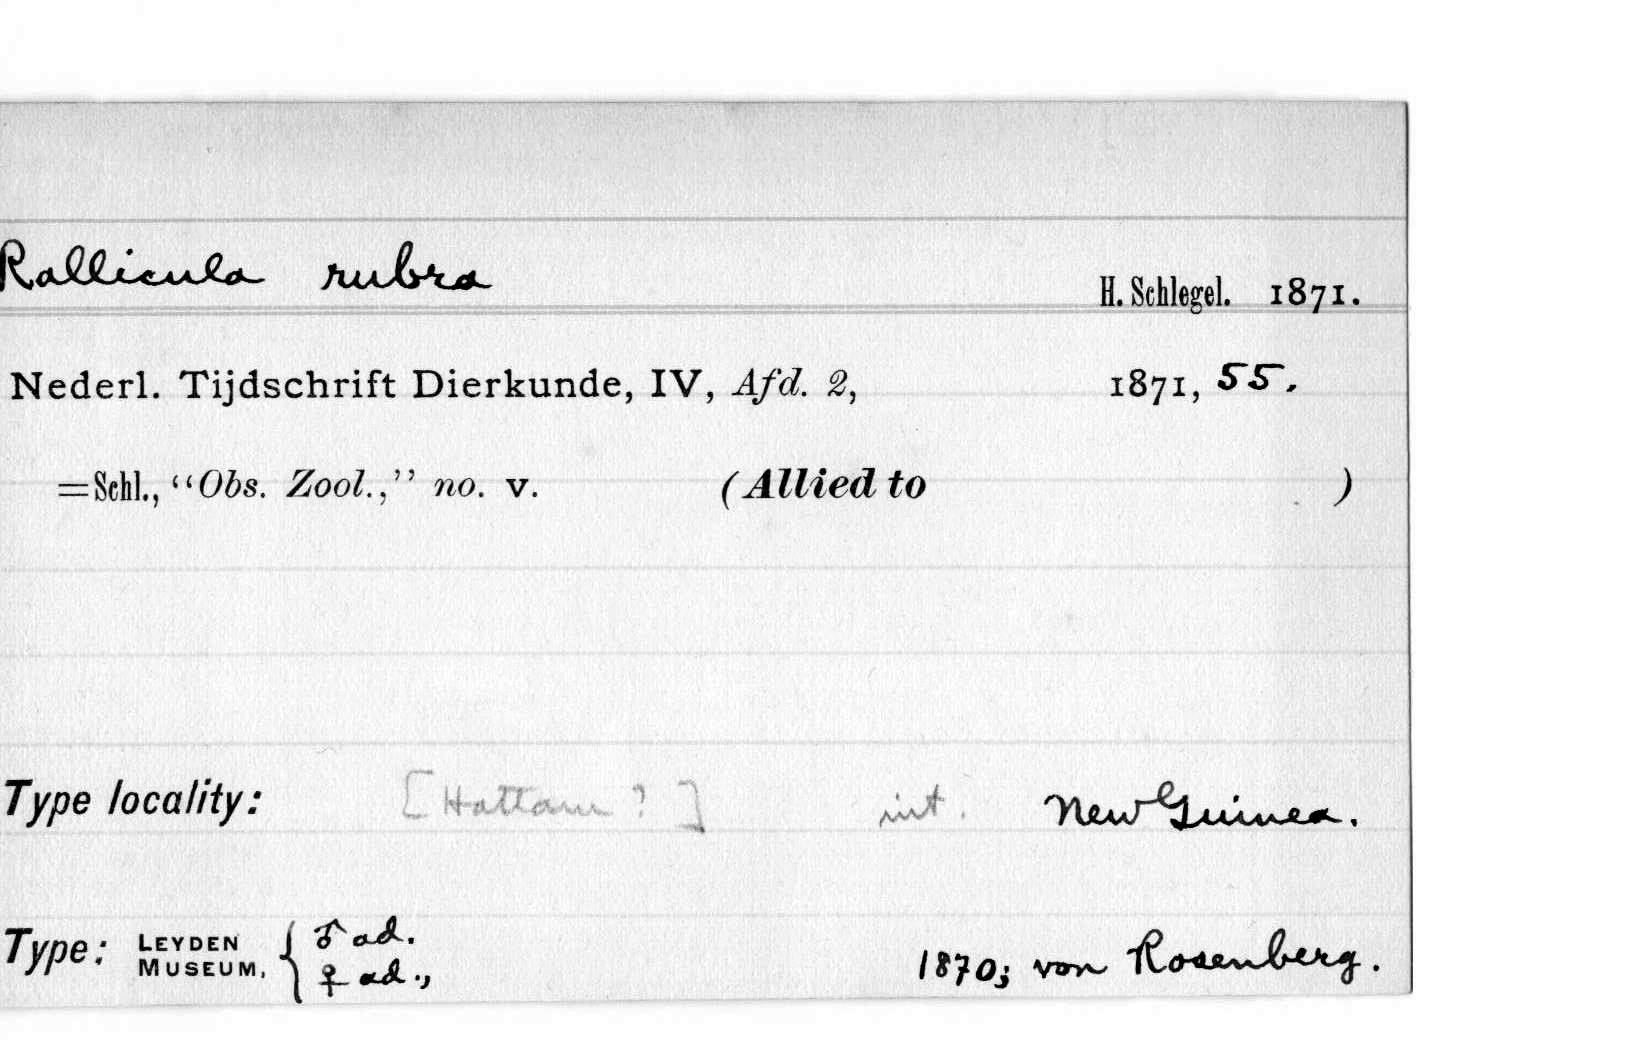 Rallicula rubra H. Schlegel. 1871.
Nederl. Tijdschrift Dierkunde, IV, Afd. 2, 1871, 55.
=Schl., “Obs. Zool.,” no. v. (Allied to )
Type locality: [Hattam ?] int. New Guinea.
Type: LEYDEN MUSEUM, { ♂ ad.
♀ ad., 1870; von Rosenberg.